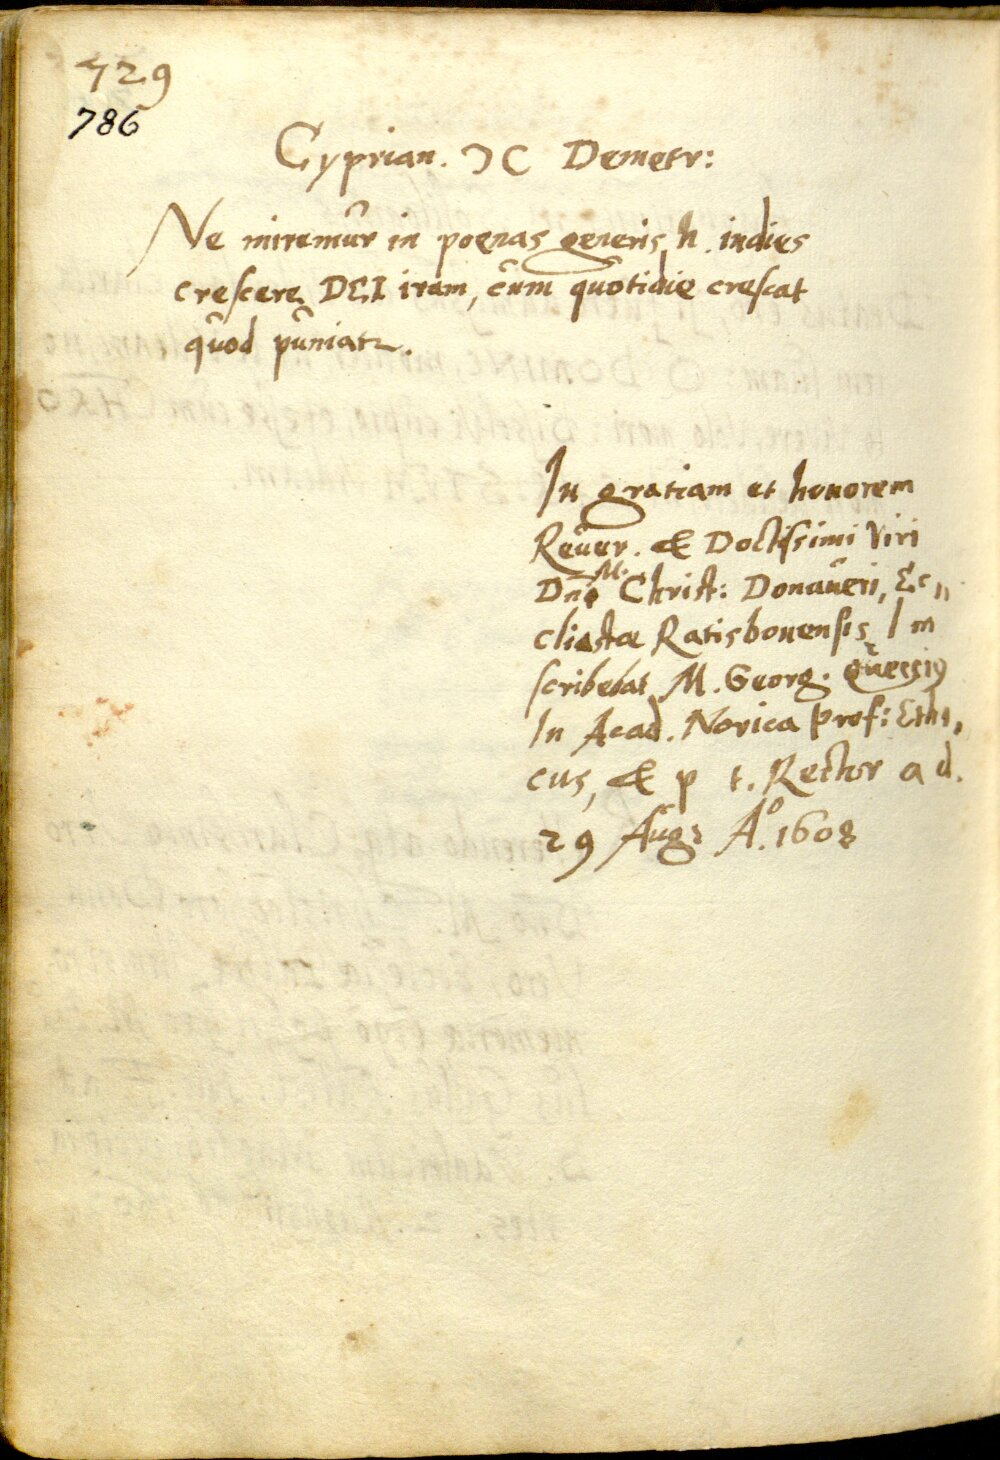 729
786
Cyprian. Ɔ C Demetr:
Ne miremur in poenas generis h. indies
crescere DEI iram, cum quotidie crescat
quod puniatr.
In gratiam et honorem
Reuer. & Doctissimi Viri
Dno M. Christ: Donaueri, Ec„
cliastæ Ratisbonensis
scribebat M. Georg. Queccig
In Acad. Norica Prof: Ethi„
cus, & p t. Rector ad.
29 Aug: Aº. 1608